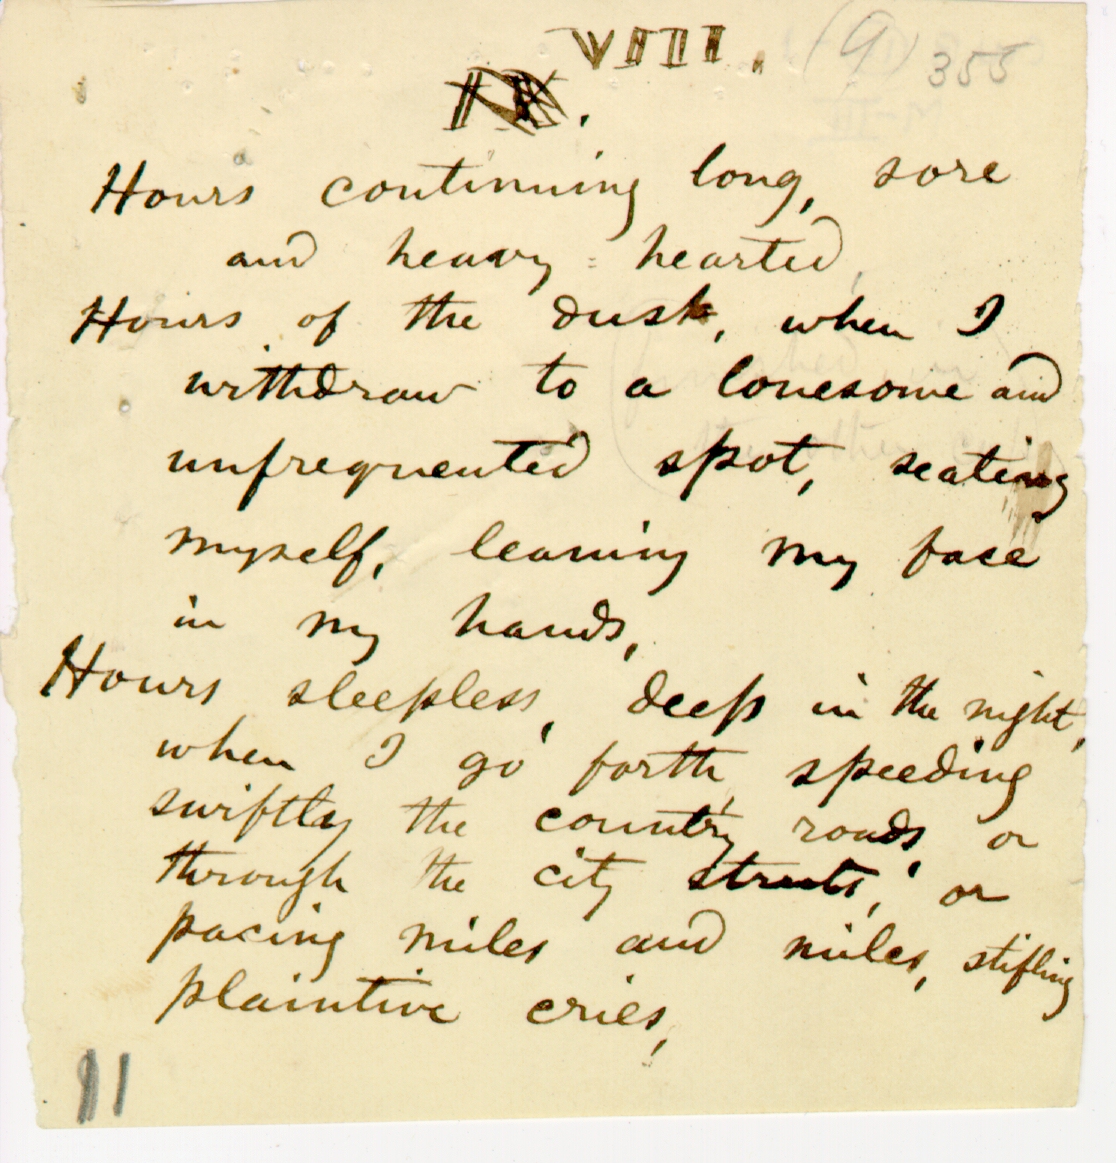 VIII.
(9) 355
IX.
Hours continuing long, sore
and heavy-hearted,
Hours of the dusk, when I
withdraw to a lonesome and
unfrequented spot, seating
myself, leaning my face
in my hands,
Hours sleepless, deep in the night,
when I go forth, speeding
swiftly the country roads, or
through the city streets, or
pacing miles and miles, stifling
plaintive cries,
11